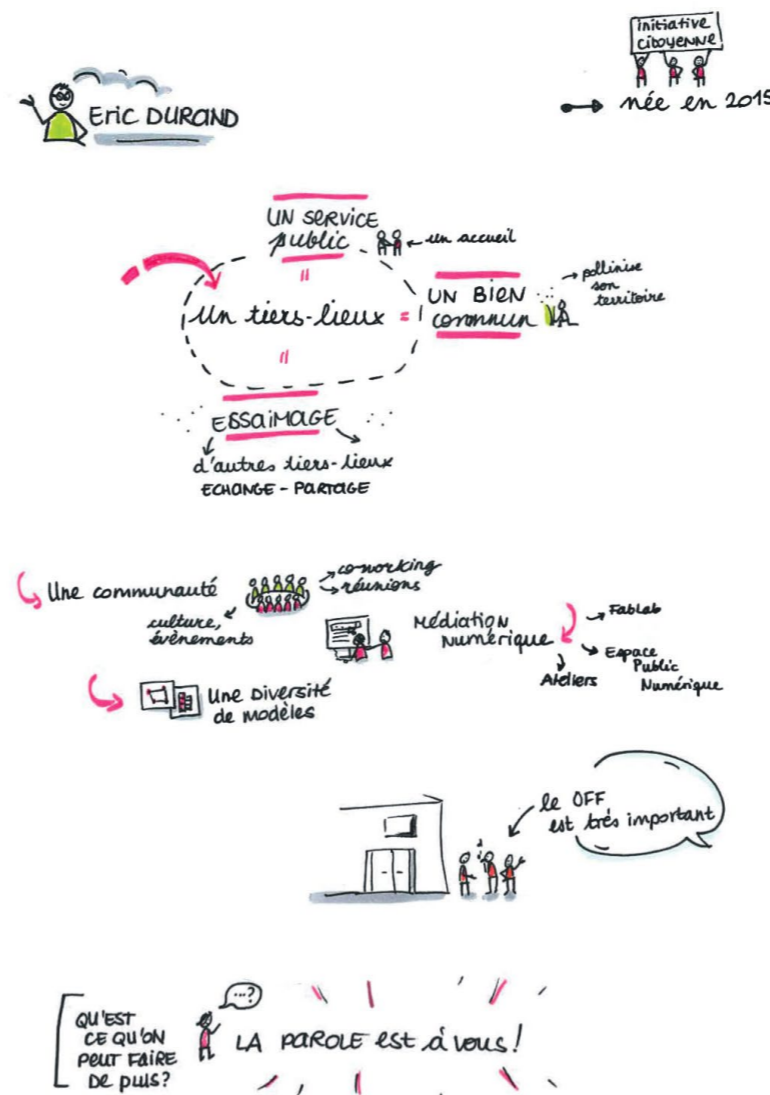 initiative
citoyenne
Eric DURAND
née en 2015
UN SERVICE
public
un accueil
Un tiers-lieux = UN BIEN
commun
pollinise
son
territoire
ESSAIMAGE
d'autres tiers-lieux
ECHANGE - PARTAGE
Une communauté
co-working
réunions
culture,
évènements
Médiation
Numérique
FabLab
Espace
Public
Numérique
Ateliers
Une Diversité
de modèles
le OFF
est très important
QU'EST
CE QU'ON
PEUT FAIRE
DE PLUS?
...?
LA PAROLE EST à vous!